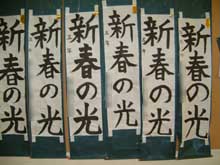 新春の光
新春の光
新春の光
新春の光
新春の光
新春の光